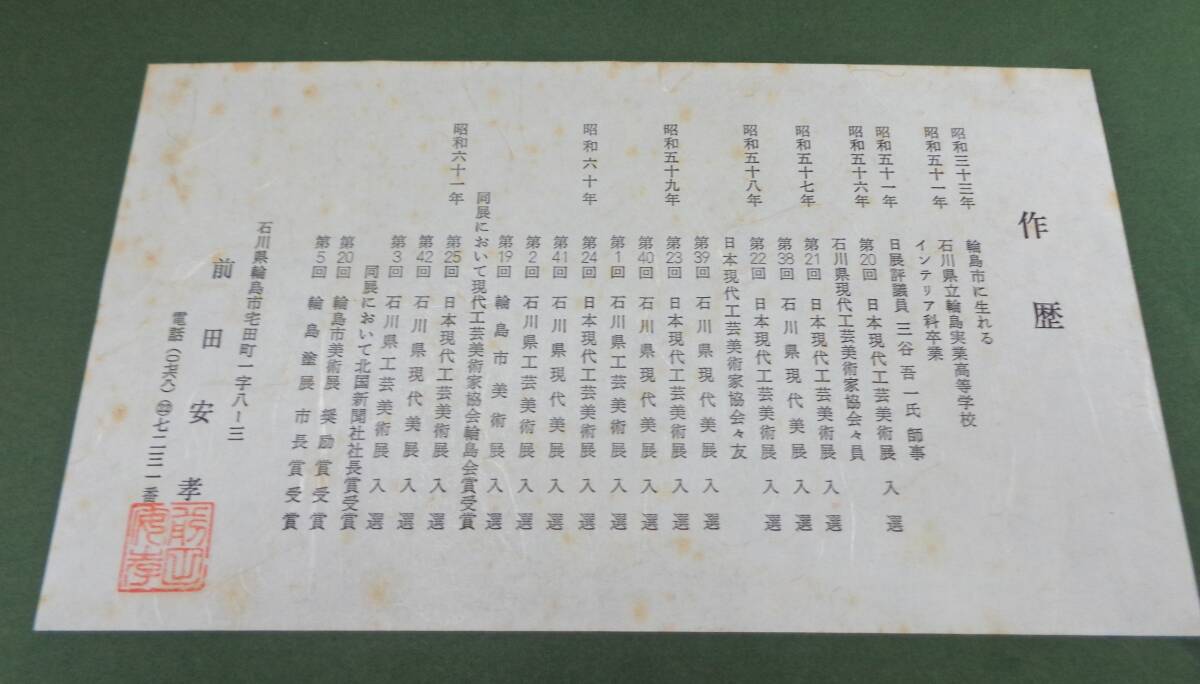 作歴
昭和三十三年 輪島市に生れる
昭和五十一年 石川県立輪島実業高等学校
インテリア科卒業
昭和五十一年 日展評議員 三谷吾一氏師事
昭和五十六年 第20回 日本現代工芸美術展 入選
石川県現代工芸美術家協会々員
昭和五十七年 第21回 日本現代工芸美術展 入選
第38回 石川県現代美展 入選
昭和五十八年 第22回 日本現代工芸美術展 入選
日本現代工芸美術家協会々友
第39回 石川県現代美展 入選
昭和五十九年 第23回 日本現代工芸美術展 入選
第40回 石川県現代美展 入選
第1回 石川県工芸美術展 入選
昭和六十年 第24回 日本現代工芸美術展 入選
第41回 石川県現代美展 入選
第2回 石川県工芸美術展 入選
第19回 輪島市美術展 入選
同展において現代工芸美術家協会輪島会賞受賞
昭和六十一年 第25回 日本現代工芸美術展 入選
第42回 石川県現代美展 入選
第3回 石川県工芸美術展 入選
同展において北国新聞社社長賞受賞
第20回 輪島市美術展 奨励賞受賞
第5回 輪島塗展 市長賞受賞
石川県輪島市宅田町一字八ー三
前田安孝
電話(〇七六八)㉒七二三一番
前田安孝